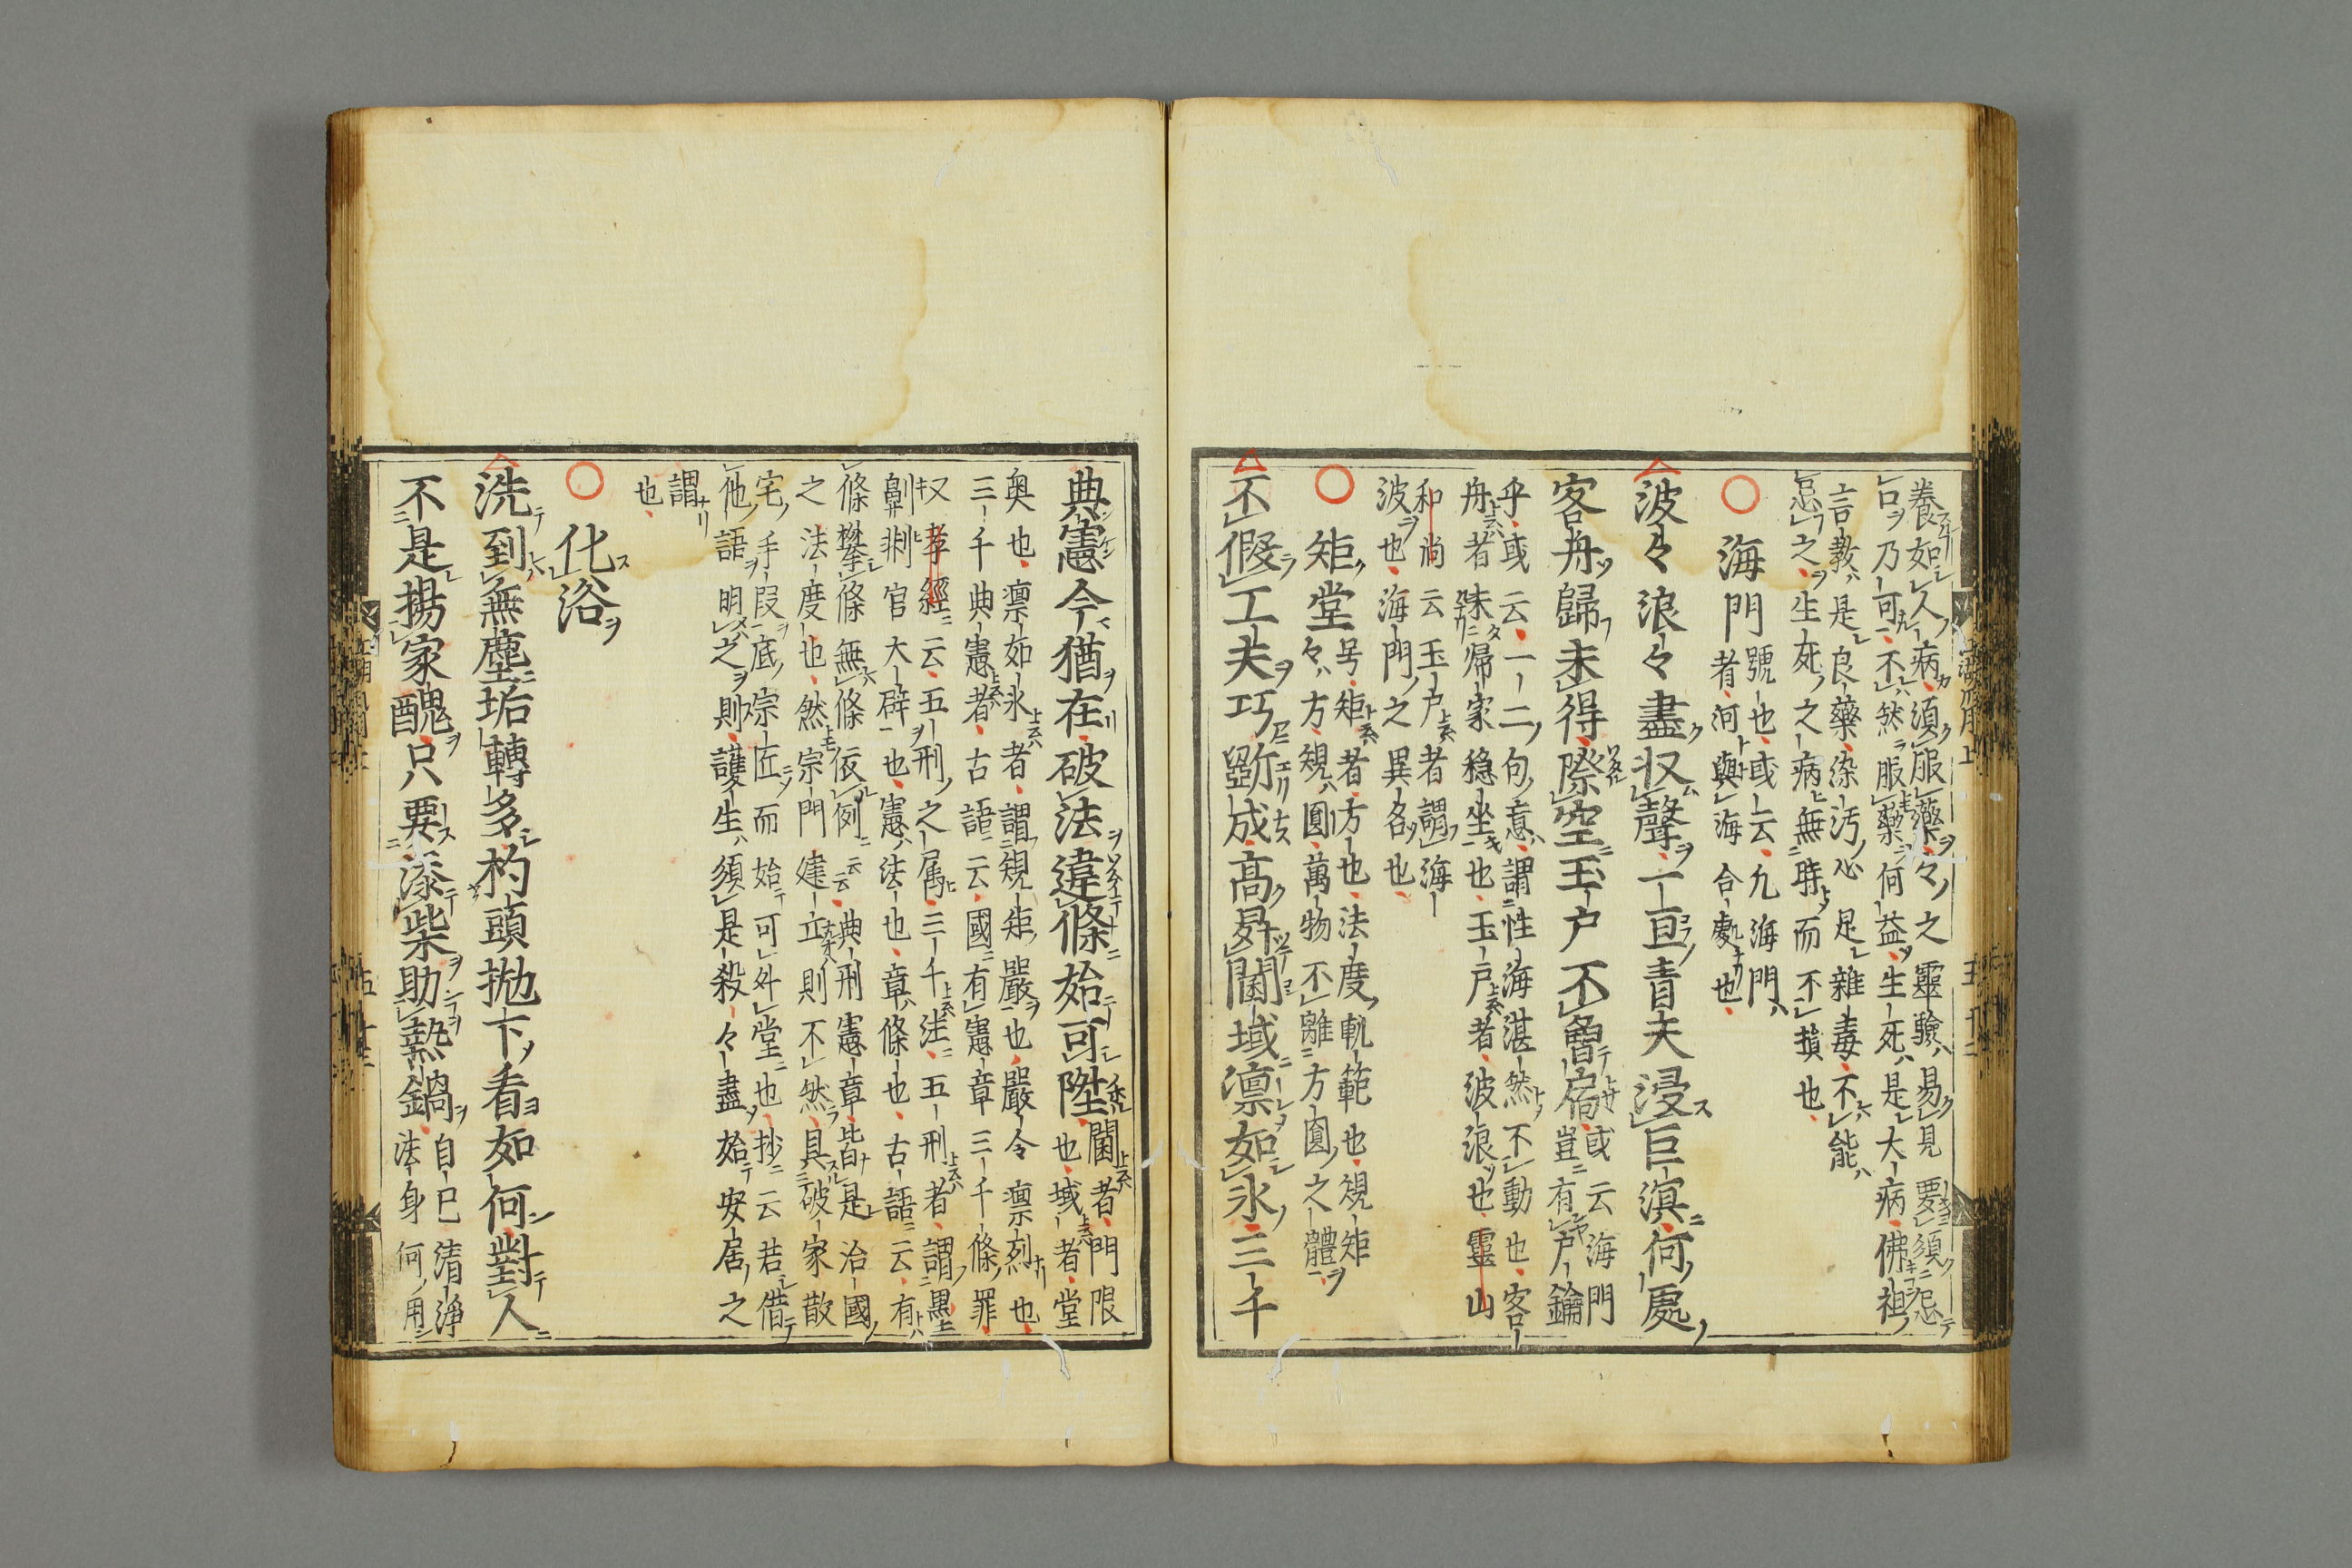 養如人病須服藥々之靈驗易見要須忌
口乃可不然服藥何益生死是大病佛祖
言教是良藥染汚心是雜毒不能
忌之生死之病無時而不損也
海門 號也或云九海門
者河與海合處也
波々浪々盡収聲一亘青夫浸巨溟何處
客舟歸未得際空玉户不曾宿 或云海門
豈有户鑰
乎或云一二句意謂性海湛然不動也客
舟者未歸家穏坐也玉戸者波浪也靈山
和尚云玉户者謂海
波也海門之異名也
矩堂 号矩者方也法度軌範也規矩
々方規圓萬物不離方圓之體
不假工夫巧斵成高昇閫域凛如氷三千
典憲今猶在破法違條始可陞 閫者門限
也域者堂
奥也凛如氷者謂規矩嚴也嚴令凛烈也
三千典憲者古語云國有憲章三千條罪
又孝經云五刑之属三千法五刑者謂墨
劓剕官大辟也憲法也章條也古語云有
條攀條無條依例云云典刑憲章皆是治國
之法度也然宗門建立則不然具破家散
宅手叚底宗匠而始可外堂也抄云若借
他語明之則護生須是殺々盡始安居之
謂
也
化浴
洗到無塵垢轉多杓頭抛下看如何對人
不是揚家醜只要添柴助熱鍋 自已清浄
法身何用